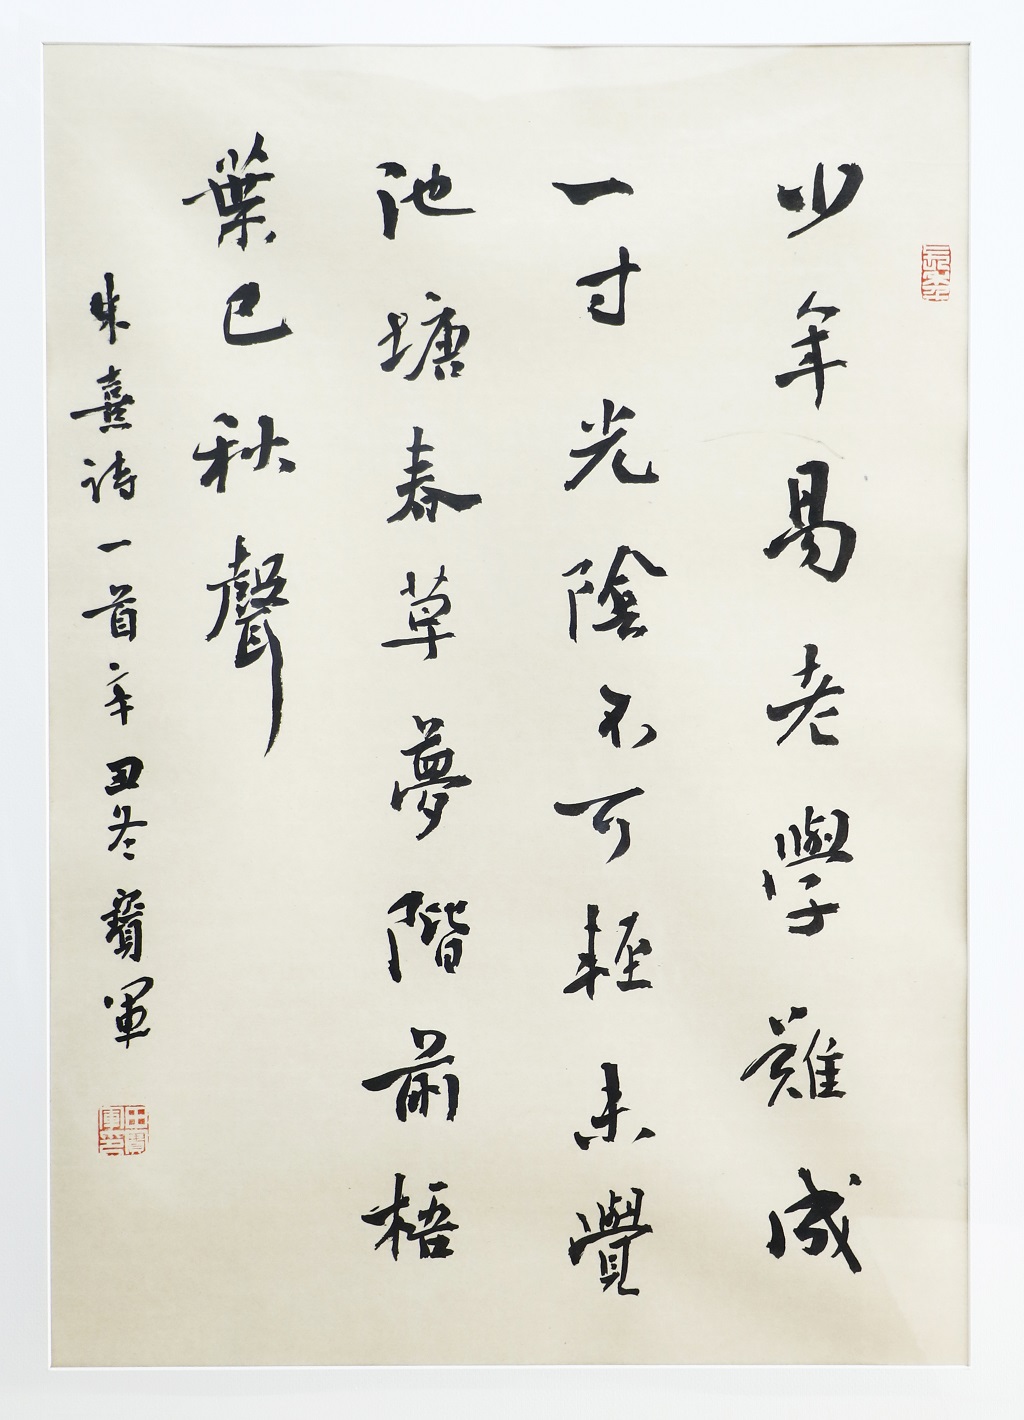 少年易老學難成
一寸光陰不可輕未覺
池塘春草夢階前梧
葉已秋聲
朱熹诗一首辛丑冬賢軍